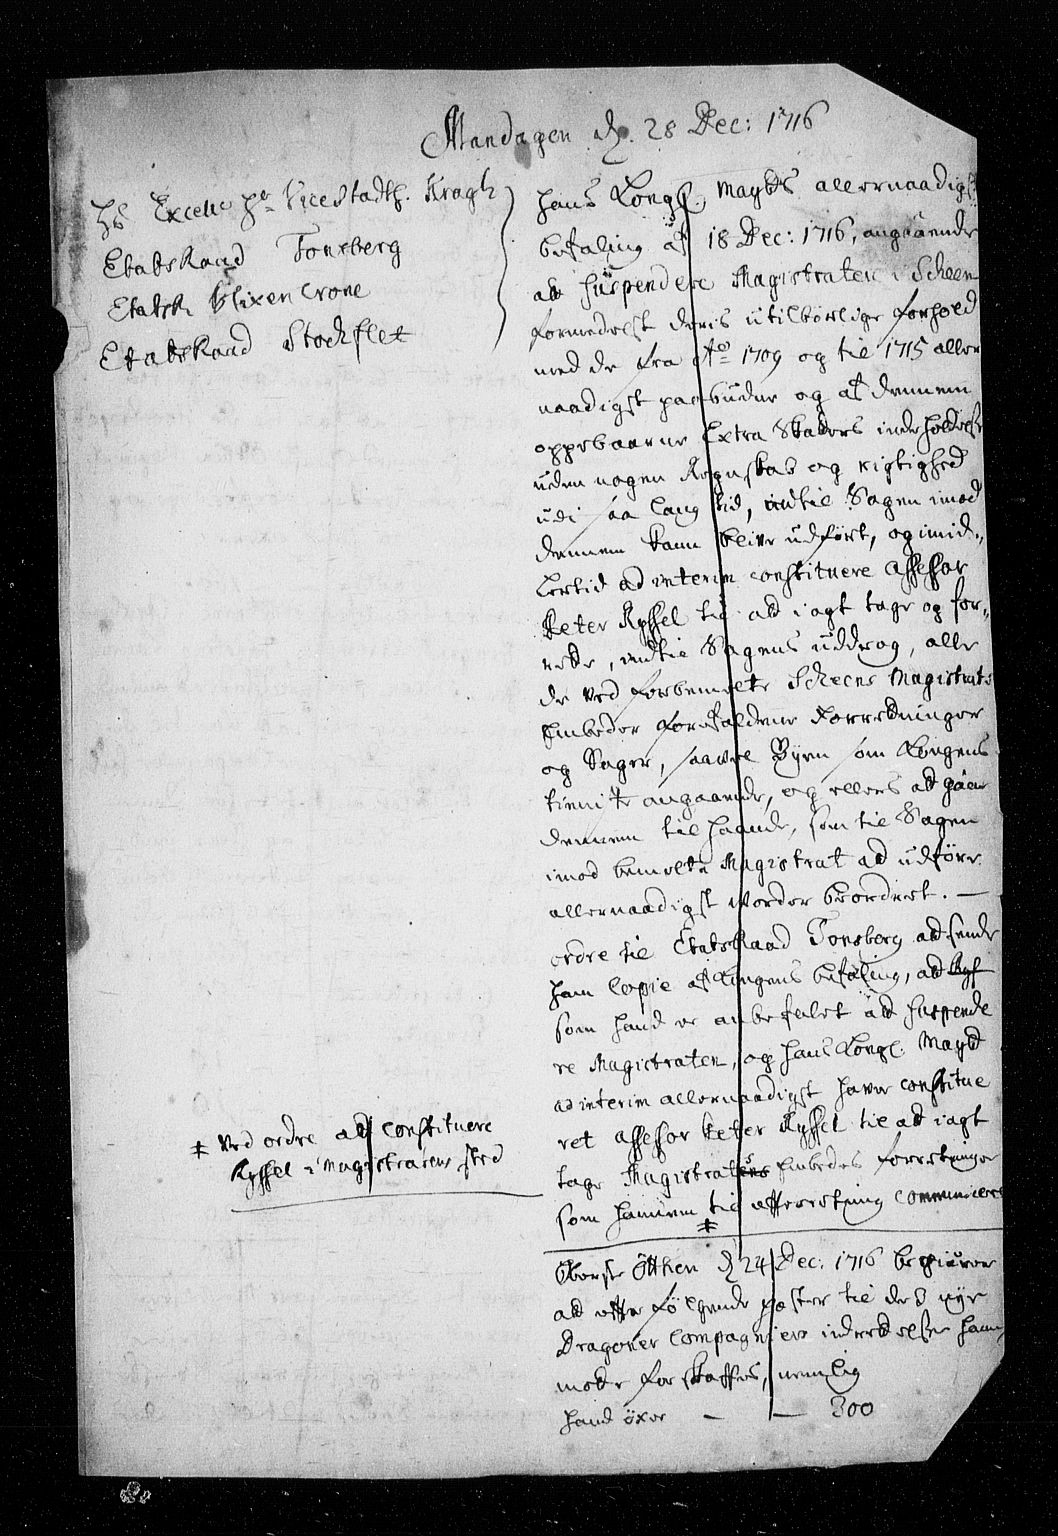 Mandagen d. 28 Dec: 1716
Hs Excell: Hr Vicestadth. Kragh
EtatsRaad Tonsberg
Etatsr. Blixencrone
EtatsRaad Stockflet
Hans Kongl. Mayts allernaadigst
befaling af 18 Dec: 1716, angaaende
att suspendere Magistraten i Scheen
formedelst deris utilbørlige forhold
med de fra Ao 1709 og til 1715 aller
naadigst paabudne og af dennem
oppebaarne Extra Skatters indeholdelse
uden nogen Regnskab og rigtighed
udi saa lang tid, indtil Sagen imod
dennem kand blive udført, og imid-
lertid ad interim constituere Assessor
Peter Ryssel til att i agt tage og for-
rette, indtil Sagens uddrag, alle
de ved forbemelte Scheens Magistrats
Embeder forefaldene Forretninger
og Sager, saavel Byen som Kongens
tieniste angaaende, og ellers att gaae
dennem til haande, som til Sagen
imod bemelte Magistrat att udføre
allernaadigst vorder beordret. —
ordre til EtatsRaad Tonsberg att sende
ham Copie af Kongens befaling, att
som hand er anbefalet att suspende
re Magistraten, og Hans Kongl. Mayt
ad interim allernaadigst haver constitue
ret Assessor Peter Ryssel til att i agt
tage Magistratens Embedes forretninger
som hannem til efterretning communiceres
‡
‡ Ved ordre att constituere
Ryssel i Magistratens sted
Oberste Øtken d. 24 Dec: 1716 begierer
att efterfølgende poster til de 3 nye
Dragoner Compagnier indrettelse hannem
motte forskaffes, nemlig
Hand öxer — — 300